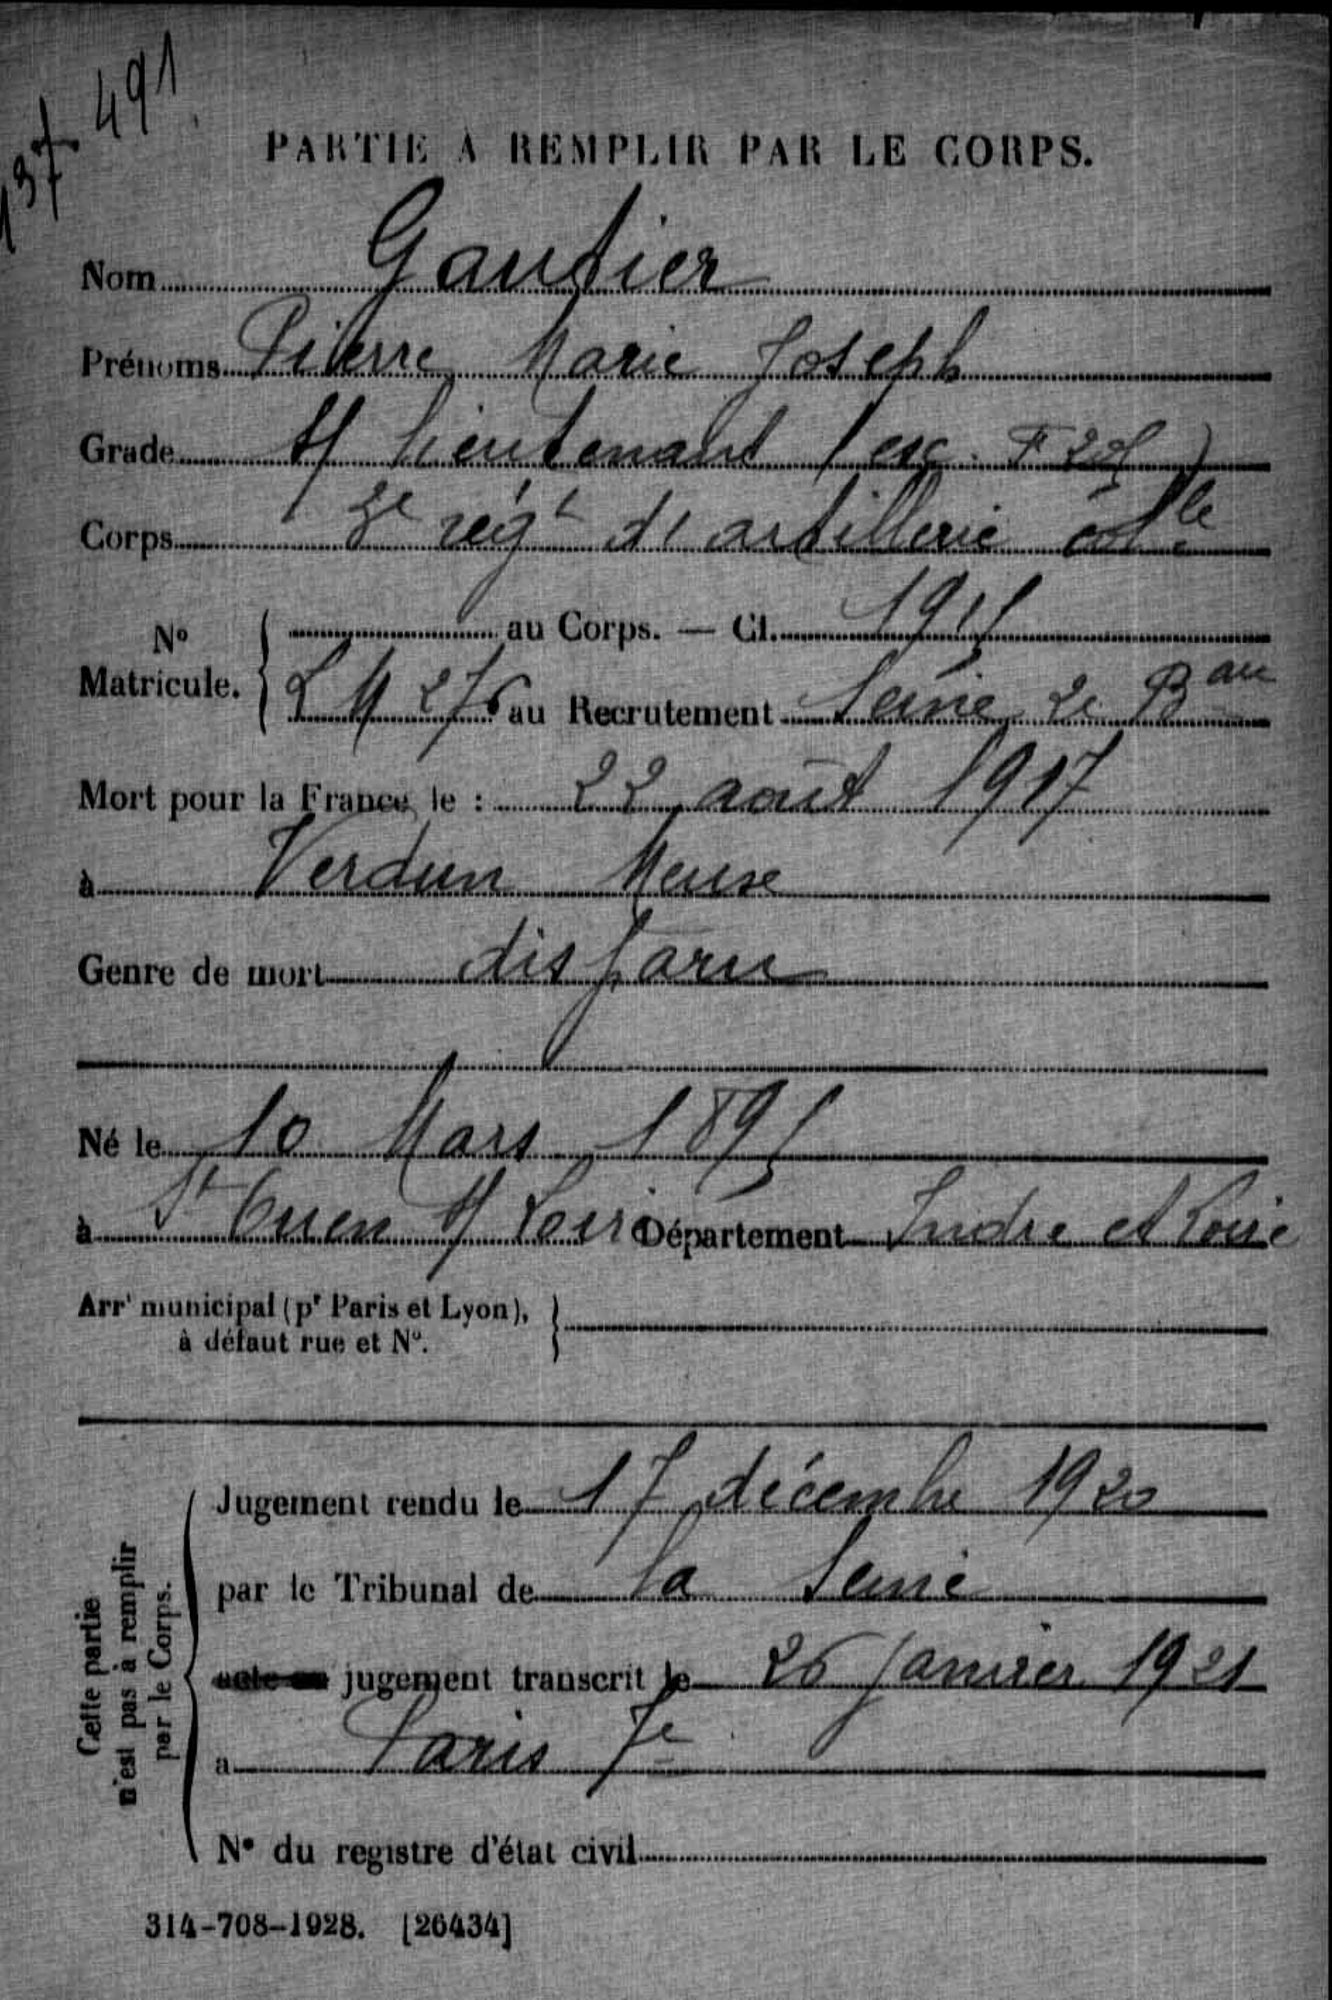 491
137
PARTIE À REMPLIR PAR LE CORPS.
Nom Gautier
Prénoms Pierre Marie Joseph
Grade s/ lieutenant (esc. F 205)
Corps 3e régt d'artillerie colle
No Matricule. { au Corps. — Cl. 1915
LM 276 au Recrutement Seine 2e Bau
Mort pour la France le : 22 août 1917
à Verdun Meuse
Genre de mort disparu
Né le 10 Mars 1895
à St Ouen s/ Loire Département Indre et Loire
Arrt municipal (pr Paris et Lyon),
à défaut rue et No.
Cette partie
n'est pas à remplir
par le Corps.
Jugement rendu le 17 décembre 1920
par le Tribunal de la Seine
acte ou jugement transcrit le 26 janvier 1921
à Paris 7e
No du registre d'état civil
314-708-1928. [26434]